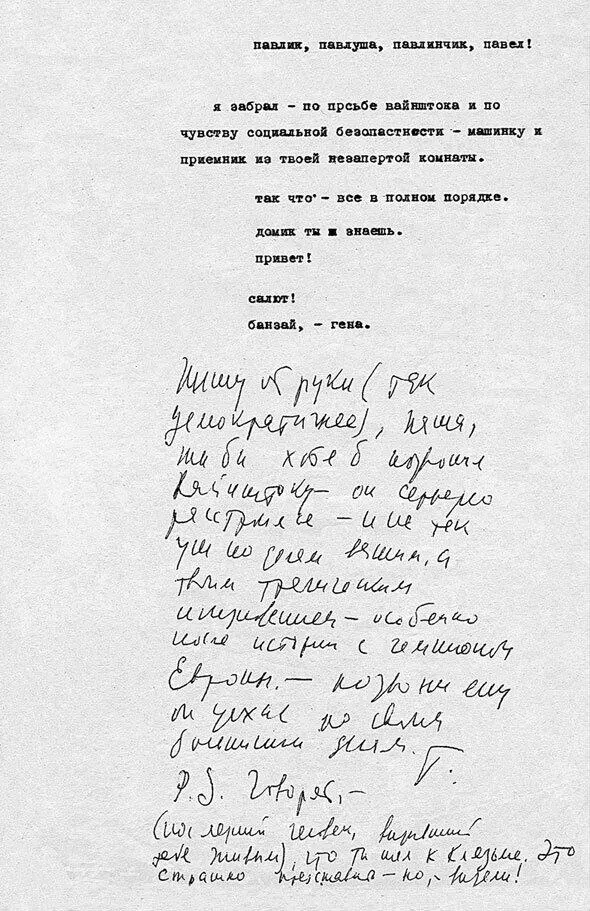 павлик, павлуша, павлинчик, павел!
я забрал - по прсьбе вайнштока и по
чувству социальной безопастности - машинку и
приемник из твоей незапертой комнаты.
так что - все в полном порядке.
домик ты ж знаешь.
привет!
салют!
банзай, - гена.
Пишу от руки (так
демократичнее), Паша,
ты бы хотя б позвонил
Вайнштоку - он серьезно
расстроился - и не так
уж по делам вашим, а
твоим трагическим
исчезновением - особенно
после истории с чемпионом
Европы. - позвони ему
он уехал по своим
домашним делам. Г.
P.S. Говорят, -
(последний человек, видевший
тебя живым), что ты шел к Клязьме. Это
страшно представить - но, - видели!